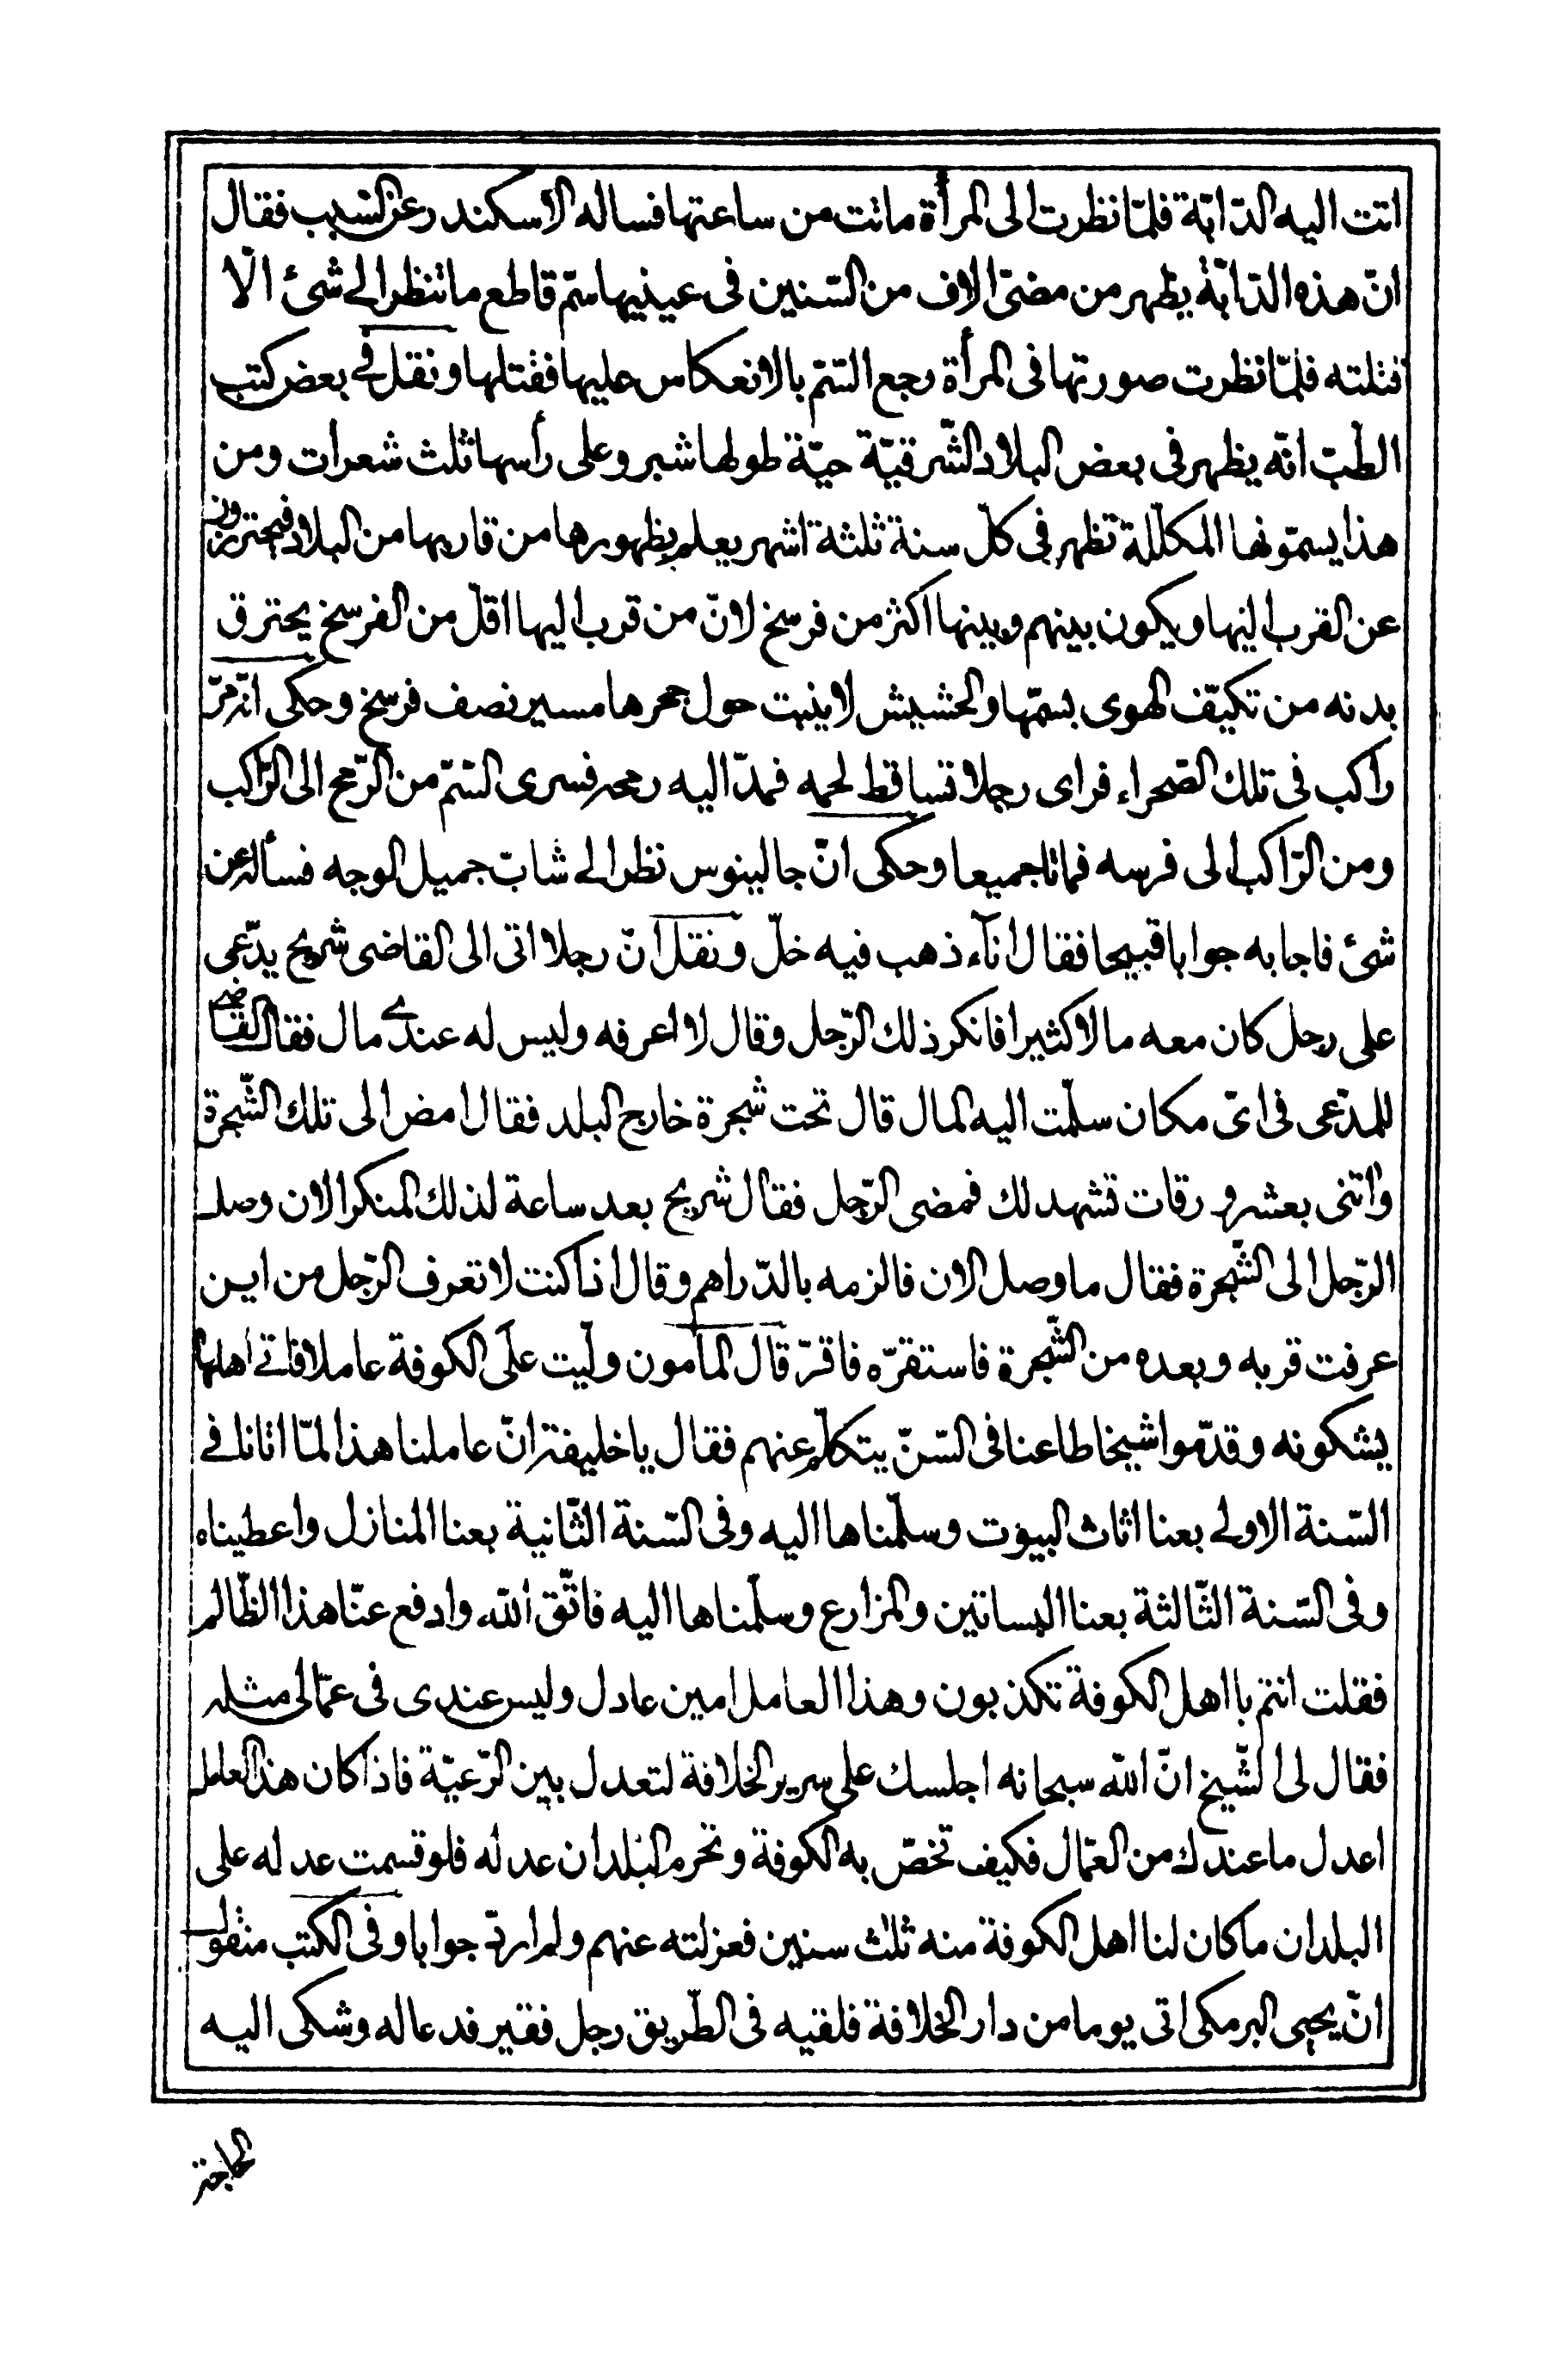 اتت اليه الدّابّة فلمّا نظرت الى المرأة ماتت من ساعتها فساله الاسكندر عن السّبب فقال
انّ هذه الدّابّة يظهر من مضىّ الاف من السّنين فى عينيها سمّ قاطع ما تنظر الى شئ الّا
قتلته فلمّا نظرت صورتها فى المرأة رجع السّمّ بالانعكاس عليها فقتلها ونقل فى بعض كتب
الطّبّ انّه يظهر فى بعض البلاد الشّرقيّة حيّة طولها شبر وعلى رأسها ثلث شعرات ومن
هذا يسمّونها المكلّلة تظهر فى كلّ سنة ثلثة اشهر يعلم بظهورها من قاربها من البلاد فيحترزون
عن القرب اليها ويكون بينهم وبينها اكثر من فرسخ لانّ من قرب اليها اقلّ من الفرسخ يحترق
بدنه من تكيّف الهوى بسمّها والحشيش لا ينبت حول جحرها مسير نصف فرسخ وحكى انّه مرّ
راكب فى تلك الصّحراء فراى رجلا تساقط لحمه فمدّ اليه رمحه فسرى السّمّ من الرّمح الى الرّاكب
ومن الرّاكب الى فرسه فماتا جميعا وحكى انّ جالينوس نظر الى شابّ جميل الوجه فسأله عن
شئ فاجابه جوابا قبيحا فقال اناء ذهب فيه خلّ ونقل انّ رجلا اتى الى القاضى شريح يدّعى
على رجل كان معه مالا كثيرا فانكر ذلك الرّجل وقال لا اعرفه وليس له عندى مال فقال القاضى
للمدّعى فى اىّ مكان سلّمت اليه المال قال تحت شجرة خارج البلد فقال امض الى تلك الشّجرة
وائتنى بعشر ورقات تشهد لك فمضى الرّجل فقال شريح بعد ساعة لذلك المنكر الان وصل
الرّجل الى الشّجرة فقال ما وصل الان فالزمه بالدّراهم وقال اذا كنت لا تعرف الرّجل من اين
عرفت قربه وبعده من الشّجرة فاستقرّه فاقرّ قال المأمون ولّيت علّى الكوفة عاملا فاتى اهلها
يشكونه وقدّموا شيخا طاعنا فى السّنّ يتكلّم عنهم فقال يا خليفة انّ عاملنا هذا لمّا اتانا فى
السّنة الاولى بعنا اثاث البيوت وسلّمناها اليه وفى السّنة الثّانية بعنا المنازل واعطيناه
وفى السّنة الثّالثة بعنا البساتين والمزارع وسلّمناها اليه فاتّق الله وادفع عنّا هذا الظّالم
فقلت انتم يا اهل الكوفة تكذبون وهذا العامل امين عادل وليس عندى فى عمّالى مثله
فقال لى الشّيخ انّ الله سبحانه اجلسك على سرير الخلافة لتعدل بين الرّعيّة فاذا كان هذا العامل
اعدل ما عندك من العمّال فكيف تخصّ به الكوفة وتحرم البلدان عدله فلو قسمت عدله على
البلدان ما كان لنا اهل الكوفة منه ثلث سنين فعزلته عنهم ولم ارد جوابا وفى الكتب منقول
انّ يحيى البرمكى اتى يوما من دار الخلافة فلقيه فى الطّريق رجل فقير فدعا له وشكى اليه
الحاجة